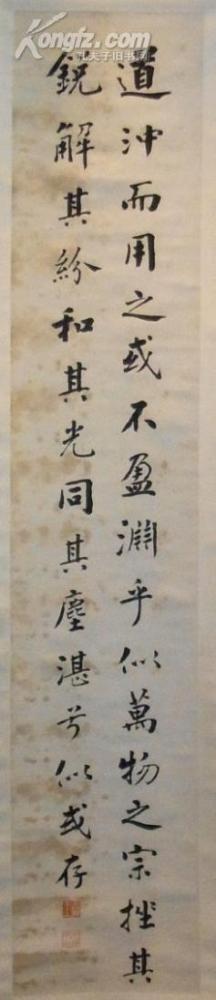 道沖而用之或不盈淵乎似萬物之宗挫其
銳解其紛和其光同其塵湛兮似或存
Kongfz.com
孔夫子旧书网